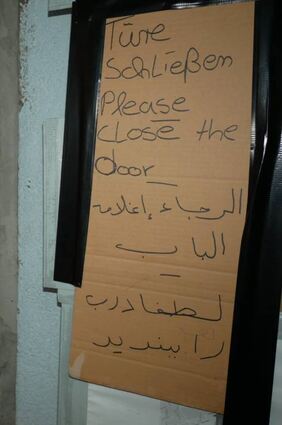 Türe
Schließen
Please
close the
door
الرجاء إغلاق
الباب
لطفا درب
را ببندید